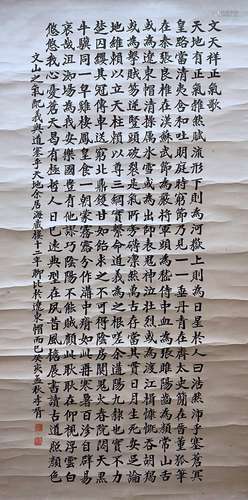 文天祥正氣歌
天地有正氣雜然賦流形下則為河嶽上則為日星於人曰浩然沛乎塞蒼冥
皇路當清夷含和吐明庭時窮節乃見一一垂丹青在齊太史簡在晉董狐筆
在秦張良椎在漢蘇武節為嚴將軍頭為嵇侍中血為張睢陽齒為顏常山舌
或為遼東帽清操厲冰雪或為出師表鬼神泣壯烈或為渡江楫慷慨吞胡羯
或為擊賊笏逆豎頭破裂是氣所磅礴凜烈萬古存當其貫日月生死安足論
地維賴以立天柱賴以尊三綱實繫命道義為之根嗟余遘陽九隸也實不力
楚囚纓其冠傳車送窮北鼎鑊甘如飴求之不可得陰房闃鬼火春院閟天黑
牛驥同一皁雞棲鳳凰食一朝蒙霧露分作溝中瘠如此再寒暑百沴自辟易
哀哉沮洳場為我安樂國豈有他謬巧陰陽不能賊顧此耿耿在仰視浮雲白
悠悠我心憂蒼天曷有極哲人日已遠典型在夙昔風簷展書讀古道照顏色
文山之氣配義與道塞乎天地介居海十三年聊比於遼東帽而已癸亥孟秋李肖